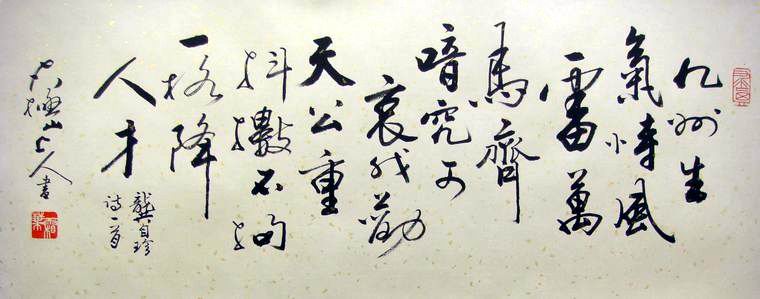 九州生
氣恃風
雷萬
馬齊
喑究可
哀我勸
天公重
抖擻不拘
一格降
人才
龔自珍
诗一首
山上人書